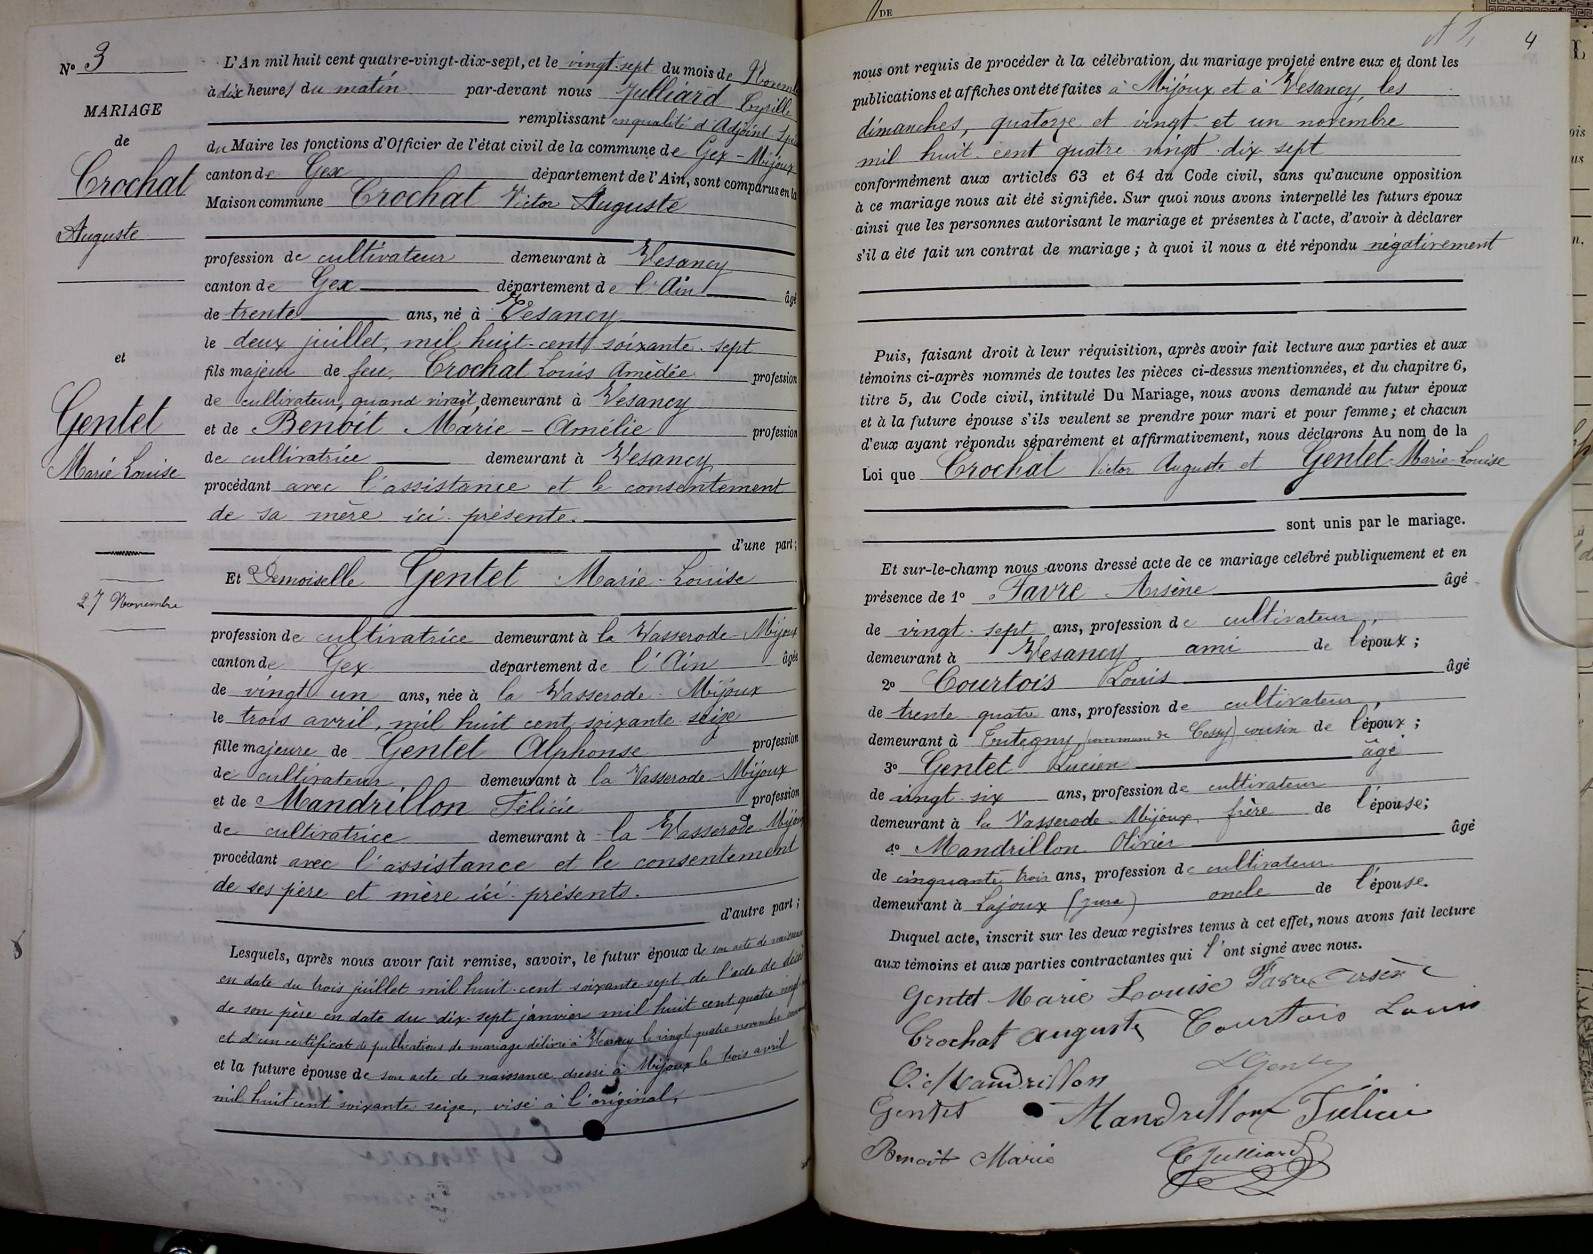 N° 3
MARIAGE
de
Crochat
Auguste
et
Gentet
Marie Louise
27 Novembre
L'An mil huit cent quatre-vingt-dix-sept, et le vingt-sept du mois de Novem
à dix heures du matin par-devant nous Julliard Cyrille
remplissant en qualité d'Adjoint Spé
du Maire les fonctions d'Officier de l'état civil de la commune de Gex-Mijoux
canton de Gex département de l'Ain, sont comparus en la
Maison commune Crochat Victor Auguste
profession de cultivateur demeurant à Vesancy
canton de Gex département de l'Ain âgé
de trente ans, né à Vesancy
le deux juillet, mil huit-cent soixante-sept
fils majeur de feu, Crochat Louis Amédée profession
de cultivateur, quand vivait, demeurant à Vesancy
et de Benoit Marie-Amélie profession
de cultivatrice demeurant à Vesancy
procédant avec l'assistance et le consentement
de sa mère ici présente.
d'une part;
Et Demoiselle Gentet Marie-Louise
profession de cultivatrice demeurant à la Vasserode-Mijoux
canton de Gex département de l'Ain âgée
de vingt un ans, née à la Vasserode-Mijoux
le trois avril, mil huit cent soixante seize
fille majeure de Gentet Alphonse profession
de cultivateur demeurant à la Vasserode-Mijoux
et de Mandrillon Félicie profession
de cultivatrice demeurant à la Vasserode Mijoux
procédant avec l'assistance et le consentement
de ses père et mère ici présents.
d'autre part;
Lesquels, après nous avoir fait remise, savoir, le futur époux de son acte de naissance
en date du trois juillet mil huit-cent soixante sept de l'acte de décès
de son père en date du dix-sept janvier mil huit cent quatre vingt
et d'un certificat de publications de mariage délivré à Vesancy le vingt quatre novembre
et la future épouse de son acte de naissance dressé à Mijoux le trois avril
mil huit cent soixante seize, visé à l'original,
4
nous ont requis de procéder à la célébration du mariage projeté entre eux et dont les
publications et affiches ont été faites à Mijoux et à Vesancy, les
dimanches, quatorze et vingt et un novembre
mil huit cent quatre vingt dix sept
conformément aux articles 63 et 64 du Code civil, sans qu'aucune opposition
à ce mariage nous ait été signifiée. Sur quoi nous avons interpellé les futurs époux
ainsi que les personnes autorisant le mariage et présentes à l'acte, d'avoir à déclarer
s'il a été fait un contrat de mariage; à quoi il nous a été répondu négativement
Puis, faisant droit à leur réquisition, après avoir fait lecture aux parties et aux
témoins ci-après nommés de toutes les pièces ci-dessus mentionnées, et du chapitre 6,
titre 5, du Code civil, intitulé Du Mariage, nous avons demandé au futur époux
et à la future épouse s'ils veulent se prendre pour mari et pour femme; et chacun
d'eux ayant répondu séparément et affirmativement, nous déclarons Au nom de la
Loi que Crochat Victor Auguste et Gentet-Marie-Louise
sont unis par le mariage.
Et sur-le-champ nous avons dressé acte de ce mariage célébré publiquement et en
présence de 1° Favre Arsène âgé
de vingt-sept ans, profession de cultivateur,
demeurant à Vesancy, ami de l'époux;
2° Courtois Louis âgé
de trente quatre ans, profession de cultivateur,
demeurant à Tutegny (commune de Cessy) cousin de l'époux;
3° Gentet Lucien âgé
de vingt-six ans, profession de cultivateur
demeurant à la Vasserode-Mijoux, frère de l'épouse;
4° Mandrillon Olivier âgé
de cinquante trois ans, profession de cultivateur
demeurant à Lajoux (Jura) oncle de l'épouse.
Duquel acte, inscrit sur les deux registres tenus à cet effet, nous avons fait lecture
aux témoins et aux parties contractantes qui l'ont signé avec nous.
Gentet Marie Louise Favre Arsène
Crochat auguste Courtois Louis
O. Mandrillon L Gentet
Gentet Mandrillon Félicie
Benoit Marie C Julliard